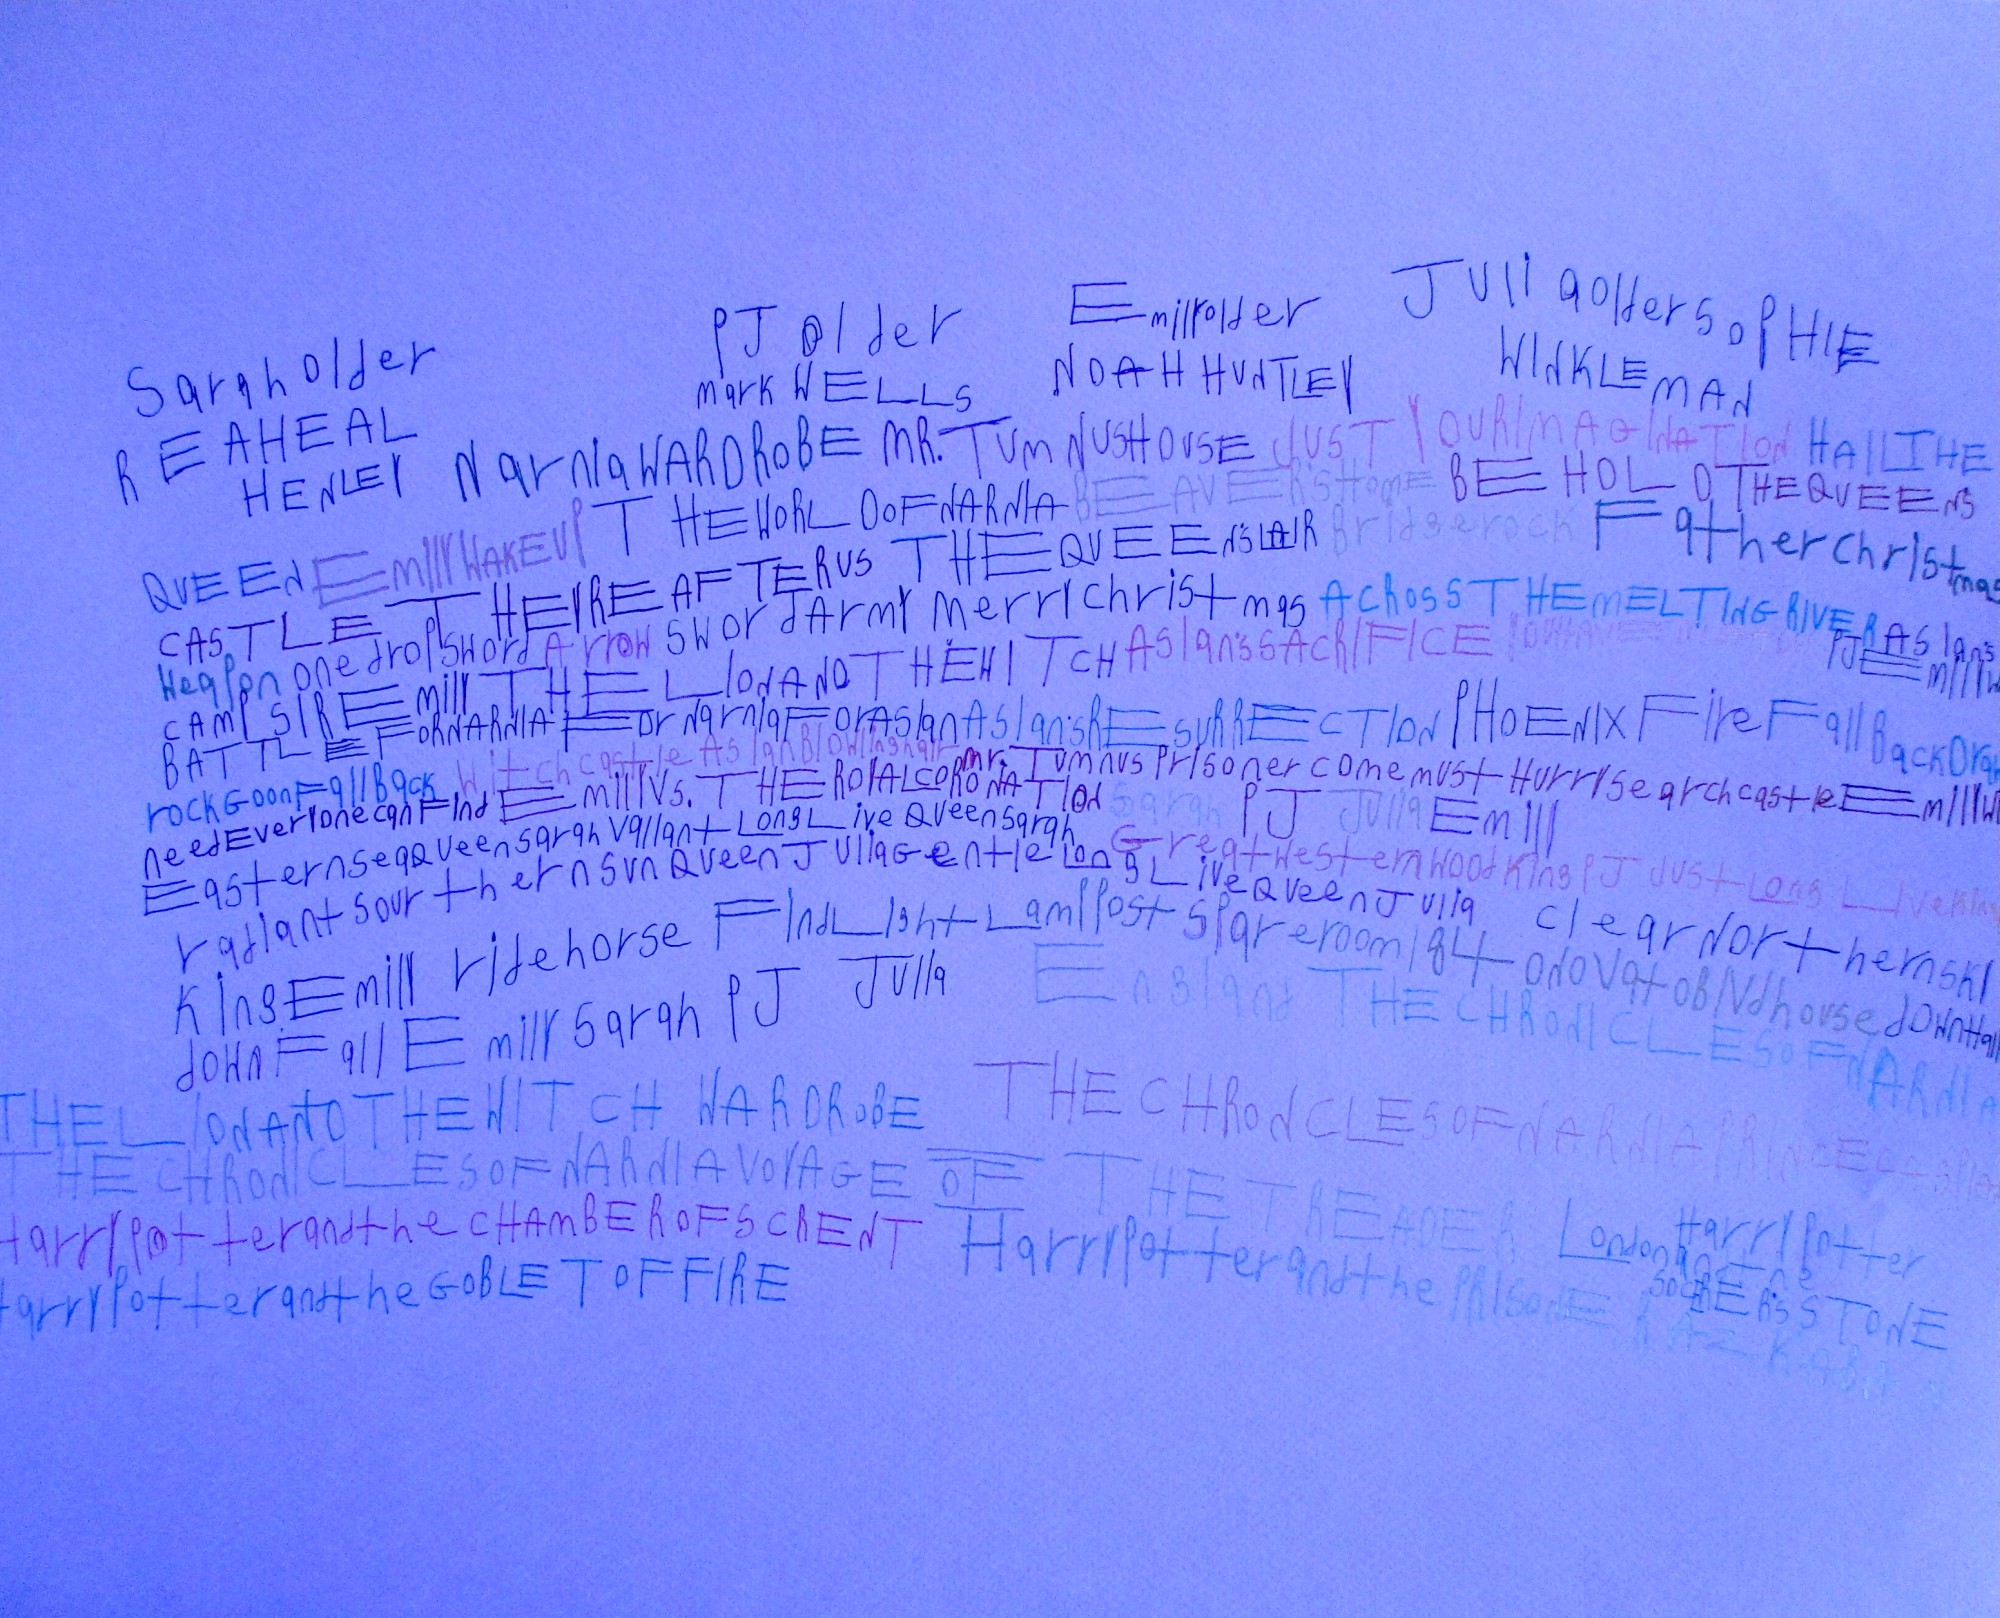 Sarah older PJ older Emilly older Julia older SOPHIE
REAHEAL HENLEY mark WELLS NOAH HUNTLEY WINKLEMAN
Narnia WARDROBE MR. TUMNUS HOUSE JUST YOUR IMAGINATION HAIL THE
QUEEN Emilly WAKE UP THE WORLD OF NARNIA BEAVER'S Home BEHOLD THE QUEENS
CASTLE THEYRE AFTER US THE QUEEN'S LAIR Bridge rock Father christmas
Weapon one drop sword Arrow sword Army merry christmas ACROSS THE MELTING RIVER ASlans
CAMP SIR Emilly THE LION AND THE WITCH ASlan's SACRIFICE PJ Emilly
BATTLE FOR NARNIA For Narnia For ASlan ASlan's RESURRECTION PHOENIX Fire Fall Back
rock Go on Fall Back Witch castle ASlan Blowing hair mr. Tumnus prisoner come must Hurry search castle Emilly
need Everyone can Find Emilly Vs. THE ROYAL CORONATION Sarah PJ Julia Emilly
Eastern sea Queen sarah Vallant Long Live Queen Sarah Great western wood King PJ Just Long Live King
radiant sourthern sun Queen Julia Gentle Long Live Queen Julia clear Northern sky
King Emilly ride horse Find Light Lamppost spare room
down Fall Emilly Sarah PJ Julia England THE CHRONICLES OF NARNIA
THE LION AND THE WITCH WARDROBE THE CHRONCLES OF NARNIA PRINCE
THE CHRONICLES OF NARNIA VOYAGE OF THE TREADER London Harry Potter and the
Harry Potter and the CHAMBER OF SCRENT Harry Potter and the PRISONER
Harry Potter and the GOBLET OF FIRE